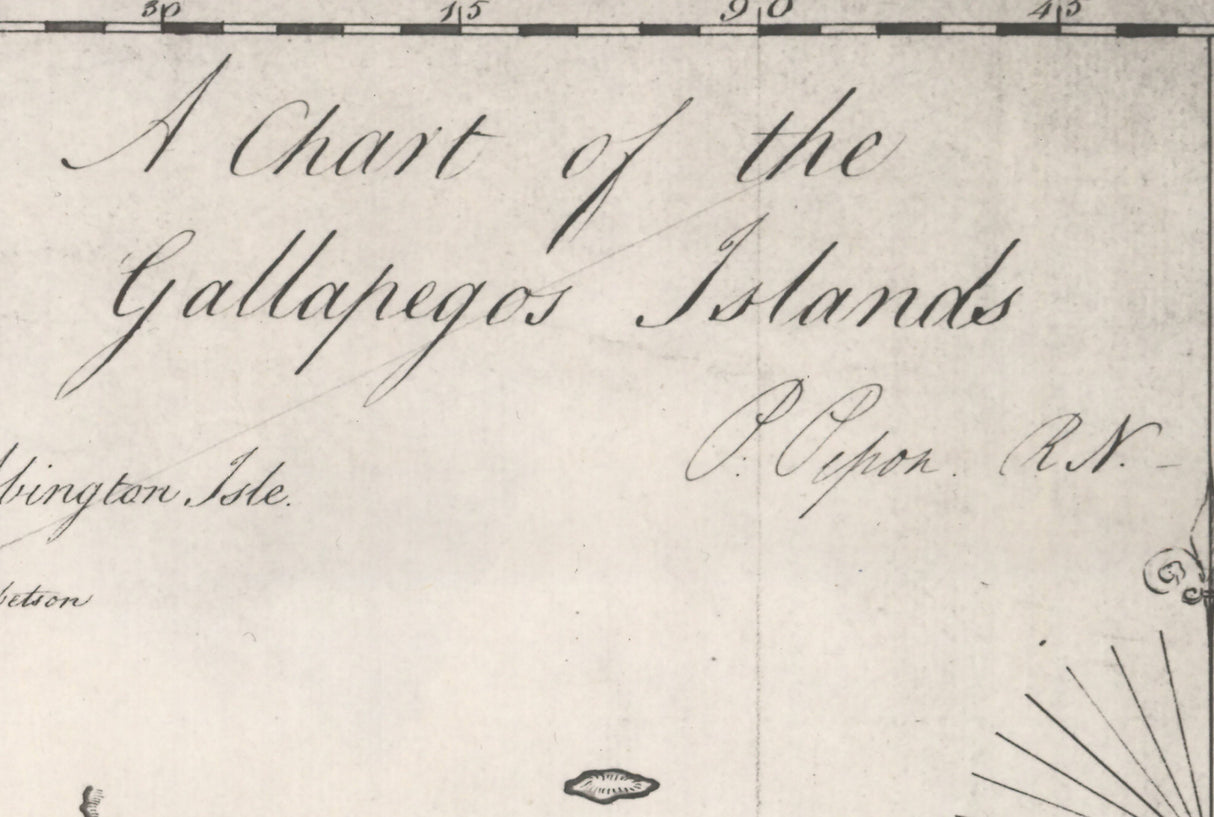 30 15 90 45
A Chart of the
Gallapegos Islands
P. Pipon. R.N.
bington Isle.
betson